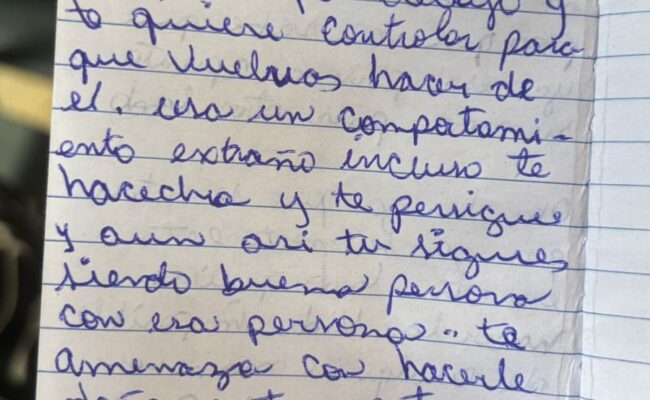 y
te quiere controlar para
que vuelvas hacer de
el. usa un comportami-
ento extraño incluso te
hacecha y te persigue
y aun asi tu sigues
siendo buena persona
con esa persona.. te
amenaza con hacerle